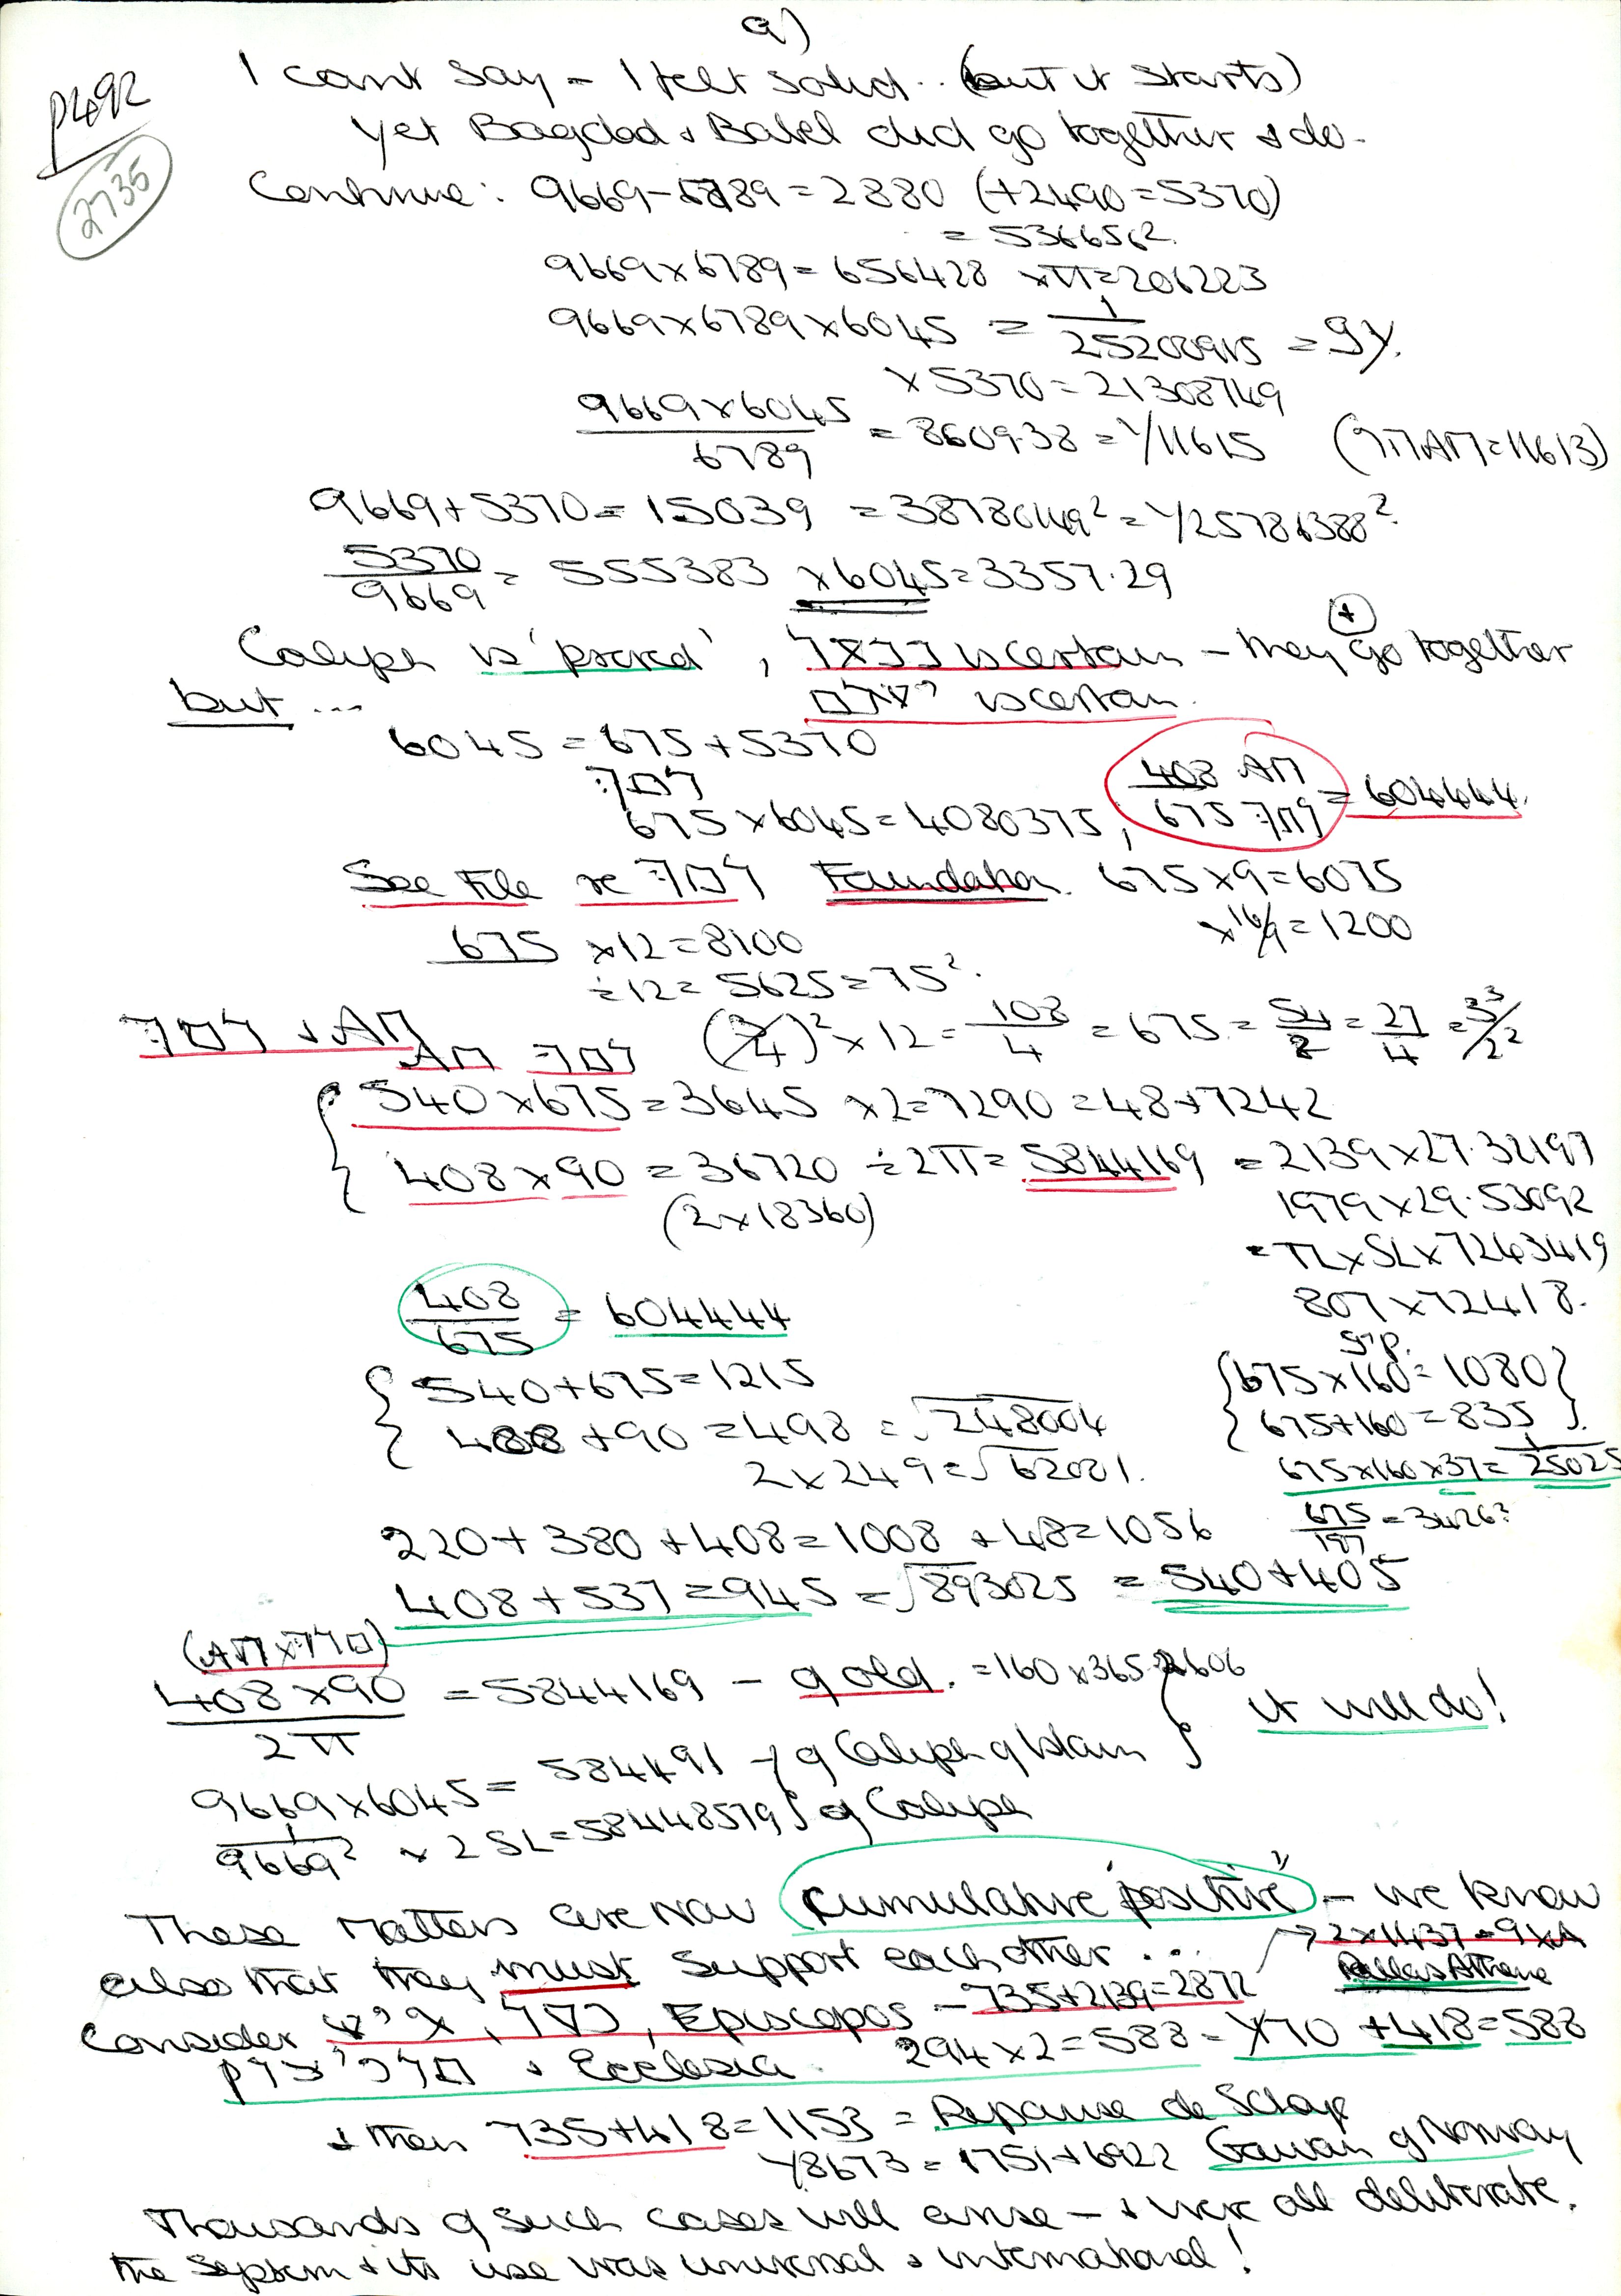 a)
P492
2735
I cant say – I felt solid .. (but it starts)
yet Bagdad & Babel did go together & do.
Continue: 9669-6789=2880 (+2490=5370)
= 536656².
9669×6789=656428 ×π=206223
9669×6789×6045 = 1/25200915 = 9Y.
×5370=21308749
9669×6045/6789 = 8609.38 = 1/11615 (=11613)
9669+5370=15039 =3878² = 1/25786388²
5370/9669 = 555383 ×6045=3357.29
Caliph is 'proved', is certain – they go together +
but ... is certain.
6045=675+5370
675×6045=4080375, 408/675 = 604444
See File re Foundation. 675×9=6075
×16/9=1200
675 ×12=8100
÷12=5625=75².
(3/4)²×12= 108/4 =675= 54/8 = 27/4 = 3³/2²
540×675=3645 ×2=7290=48+7242
408×90=36720 ÷2π=5844169 =2139×27.32197
(2×18360) 1979×29.53092
=TL×SL×7243419
807×72418.
408/675 = 604444
540+675=1215 {675×160=1080}
408+90=498=√248004 {675+160=835}
2×249=√62001. 675×160×37= 1/25025
220+380+408=1008+48=1056 675/197 =3426?
408+537=945=√893025 =540+405
408×90/2π =5844169 – gold. =160×365.2606
it will do!
9669×6045= 584491 – of Caliph of Islam
1/9669² × 2SL=58448579 of Caliph
These matters are now 'cumulative positive' – we know
also that they must support each other ... → 2×11437=9
Pallas Athene
Consider , , Episcopos – 735+2139=2872
& Ecclesia. 294×2=588 – 1/170 +418=588
& then 735+418=1153 = Repanse de Schoye
1/8673 = 1751+6922 Gawan of Norway
Thousands of such cases will arise – & were all deliberate.
the System & its use was universal & international!